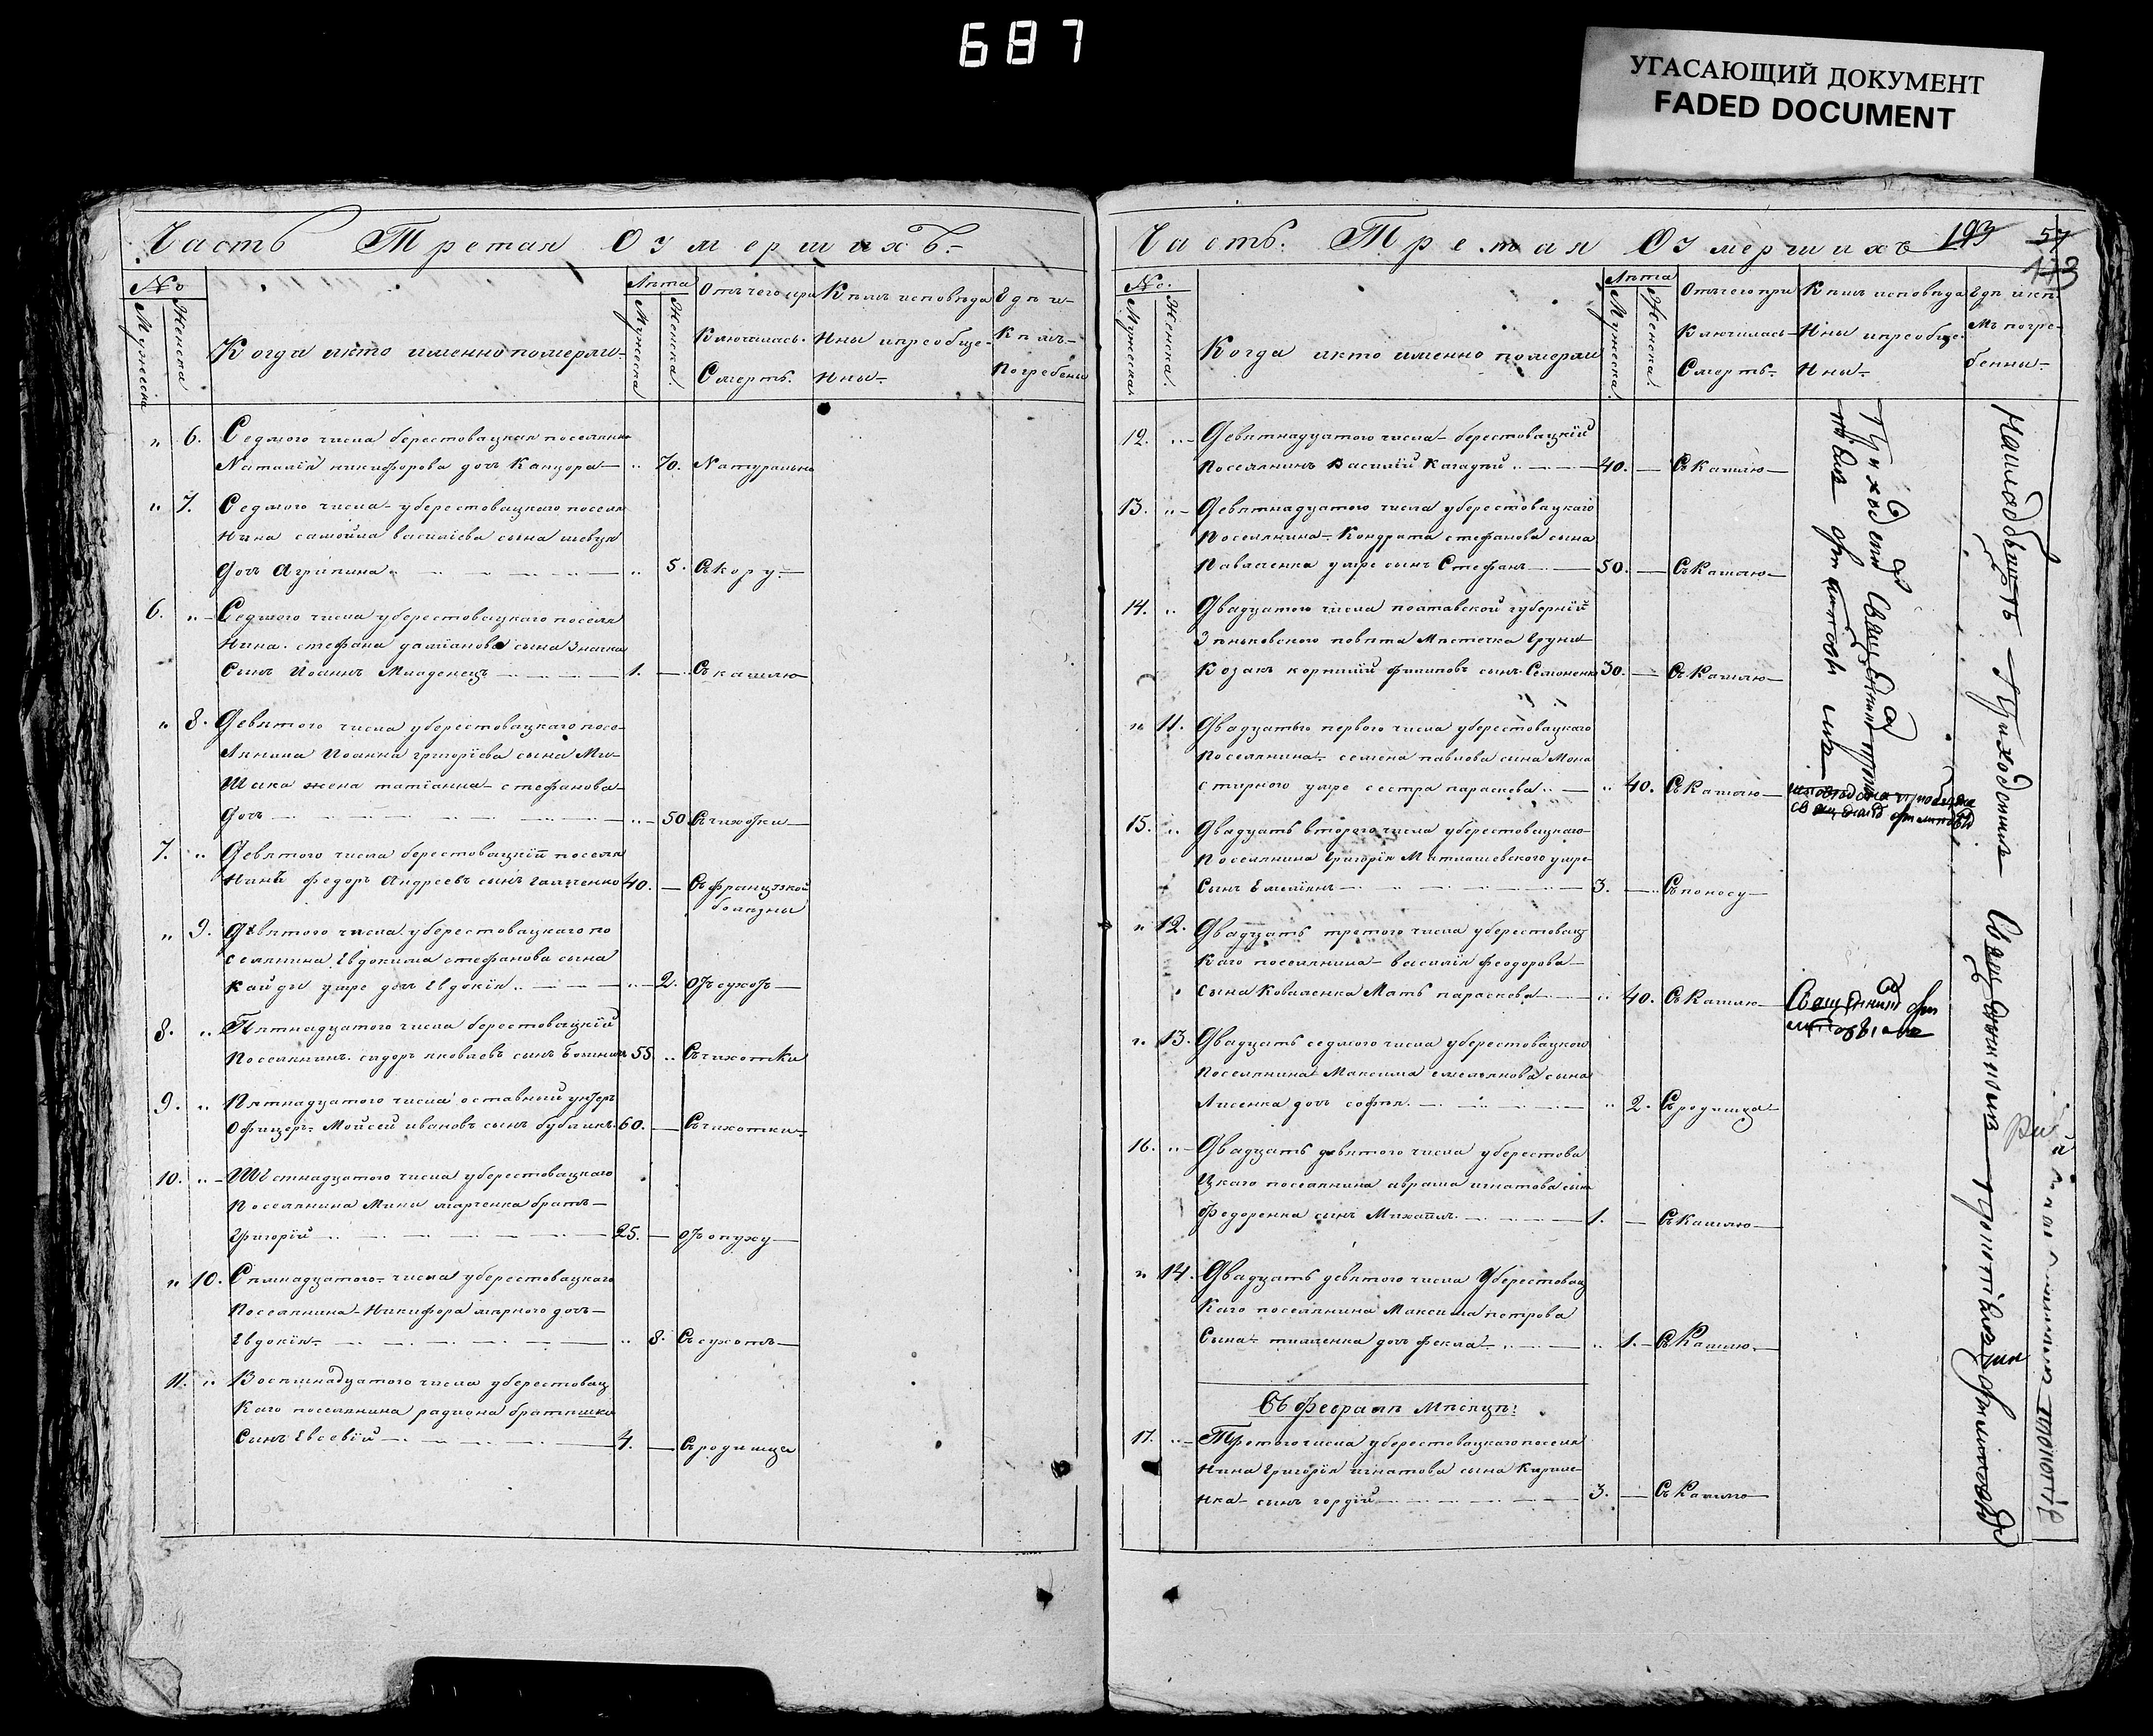 687
УГАСАЮЩИЙ ДОКУМЕНТ
FADED DOCUMENT
Часть Третая Оумершихъ
№
Мужеска
Женска
Когда икто именно померли
Лѣта
Мужеска
Женска
Отъ чего при
ключилась
Смерть
Кѣмъ исповѣда
ны ипреобще
ны
Гдѣ и
кѣмъ
погребены
" 6. Седмого числа берестовацкая поселянка
Наталія никифорова дочь Канцора " 70. Натурально
" 7. Седмого числа уберестовацкаго поселя
нина самойла василіева сына шевчука
дочь Агрипина " 5. Съкору
6. " Седмого числа уберестовацкаго поселя
нина стефана даміанова сына Значка
Сынъ Иоаннъ Младенецъ 1. Съкашлю
" 8. Девятого числа уберестовацкаго посе
лянина Иоанна григоріева сына Ми
шика жена татіанна стефанова
дочь 50 Съчихотки
7. " Девятого числа берестовацкій поселя
нинъ федоръ Андреевъ сынъ Галченко 40. Съфранцузкой
болѣзны
" 9. Девятого числа уберестовацкаго по
селянина Евдокима стефанова сына
Кайды умре дочь Евдокія 2. Отъсухотъ
8. " Пятнадцатого числа берестовацкій
поселянинъ сидоръ яковлевъ сынъ 55. Съчихотки
9. " Пятнадцатого числа оставний унтеръ
Офицеръ Мойсей ивановъ сынъ бубликъ 60. Съчихотки
10. " Шестнадцатого числа уберестовацкаго
поселянина Мины марченка братъ
Григорій 25. Отъопуху
" 10. Сѣмнадцатого числа уберестовацкаго
Поселянина Никифора мирного дочь
Евдокія " 8. Съсухотъ
11. " Восѣмнадцатого числа уберестовац
каго поселянина радиона братишка
Сынъ Евсевій 4. Съродимца
Часть Третая Оумершихъ 193 57
173
№
Мужеска
Женска
Когда икто именно померли
Лѣта
Мужеска
Женска
Отъчего при
ключилась
Смерть
Кѣмъ исповѣда
ны ипреобще
ны
Гдѣ икѣ
мъ погре
бенны
12. " Девятнадцатого числа берестовацкій
поселянинъ Василій Кагадѣй 40. Съкашлю
13. " Девятнадцатого числа уберестовацкаго
Поселянина Кондрата стефанова сына
Павленка умре сынъ Стефанъ 50. Съкашлю
14. " Двадцатого числа полтавской губерній
Зѣньковского повѣта Мѣстечка Груни
Козакъ корнилій филиповъ сынъ Семоненко 30. Съкашлю
" 11. Двадцатьго первого числа уберестовацкаго
Поселянина семена павлова сына Мона
стирного умре сестра параскева " 40. Съкашлю
15. " Двадцать второго числа уберестовацкаго
Поселянина Григорія Матяашевского умре
Сынъ Емеліянъ 3. Съпоносу
" 12. Двадцать третого числа уберестовац
каго поселянина василія феодорова
сына Коваленка Мать параскева " 40. Съкашлю
" 13. Двадцать седмого числа уберестовацкой
поселянина Максима емеліянова сына
Лисенка дочь софія " 2. Съродимца
16. " Двадцать девятого числа уберестова
цкаго поселянина аврама игнатова сына
федоренка сынъ Михаилъ 1. Съкашлю
" 14. Двадцать девятого числа уберестовац
каго поселянина Максима петрова
Сына тимченка дочь фекла " 1. Съкашлю
Въ Февралѣ Мѣсяцѣ
17. " Третого числа уберестовацкаго поселя
нина Григорія игнатова сына Кириле
нка сынъ гордій 3. Съкашлю